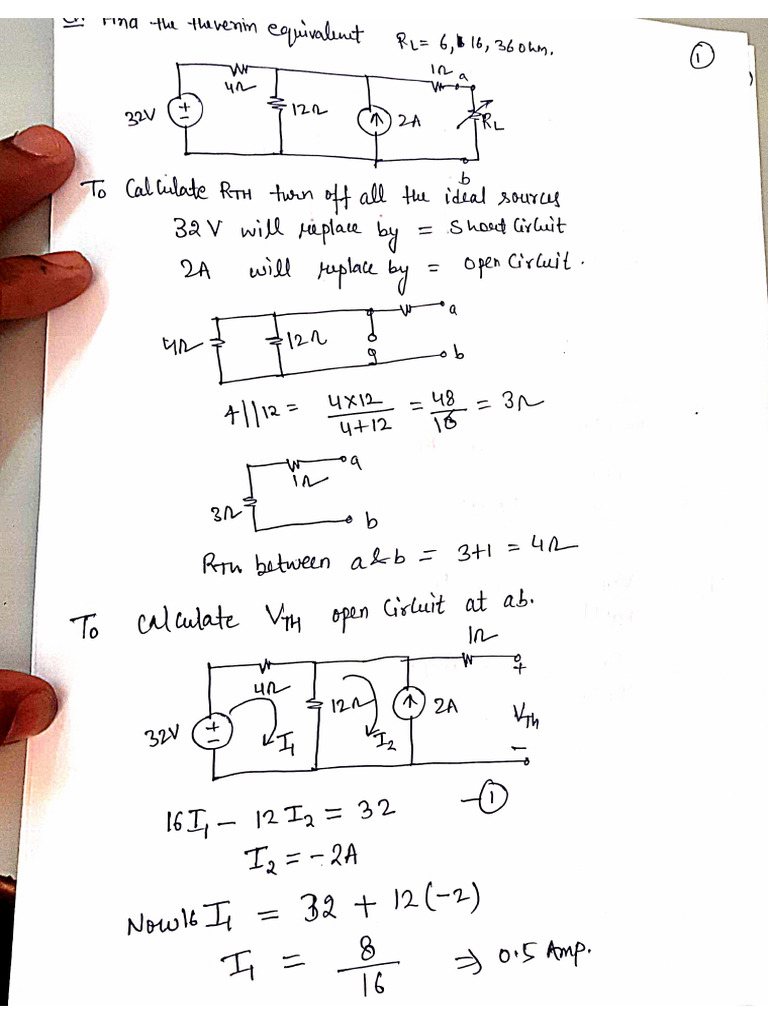 Q. Find the thevenin equivalent RL = 6, 16, 36 ohm.
①
4Ω
1Ω
a
32V
+
−
12Ω
↑
2A
RL
b
To Calculate RTH turn off all the ideal sources
32V will replace by = Short Circuit
2A will replace by = open Circuit.
a
4Ω
12Ω
b
4||12 = 4×12/4+12 = 48/16 = 3Ω
a
1Ω
3Ω
b
RTH between a & b = 3+1 = 4Ω
To Calculate VTH open Circuit at ab.
1Ω
4Ω
+
32V
+
−
I1
12Ω
I2
↑
2A
VTh
−
16I1 − 12I2 = 32 —①
I2 = −2A
Now 16 I1 = 32 + 12(−2)
I1 = 8/16 ⇒ 0.5 Amp.